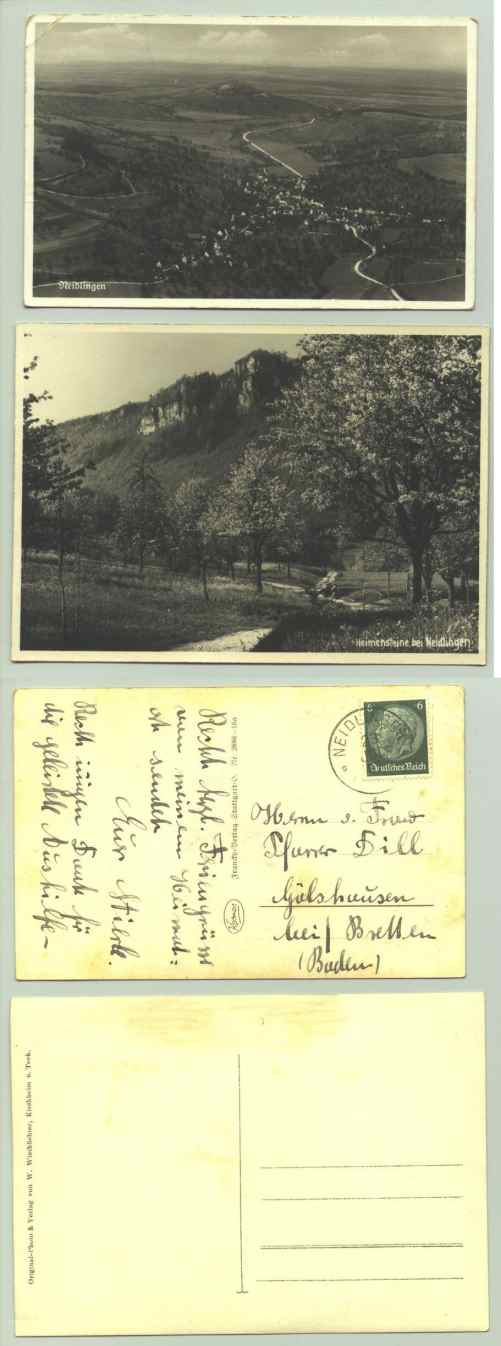 Neidlingen
Heimensteine bei Neidlingen
Recht hzgl.
von meinem Heimat-
ort sendet
Eur Stierle.
Recht innigen Dank für
die geleistete Aushilfe-
Franckh-Verlag Stuttgart-O.
Kosmos
NEIDL
6 6
Deutsches Reich
Herrn u. Frau
Pfarrer Dill
Gölshausen
bei Bretten
(Baden)
Original-Photo & Verlag von W. Kirchheim u. Teck.